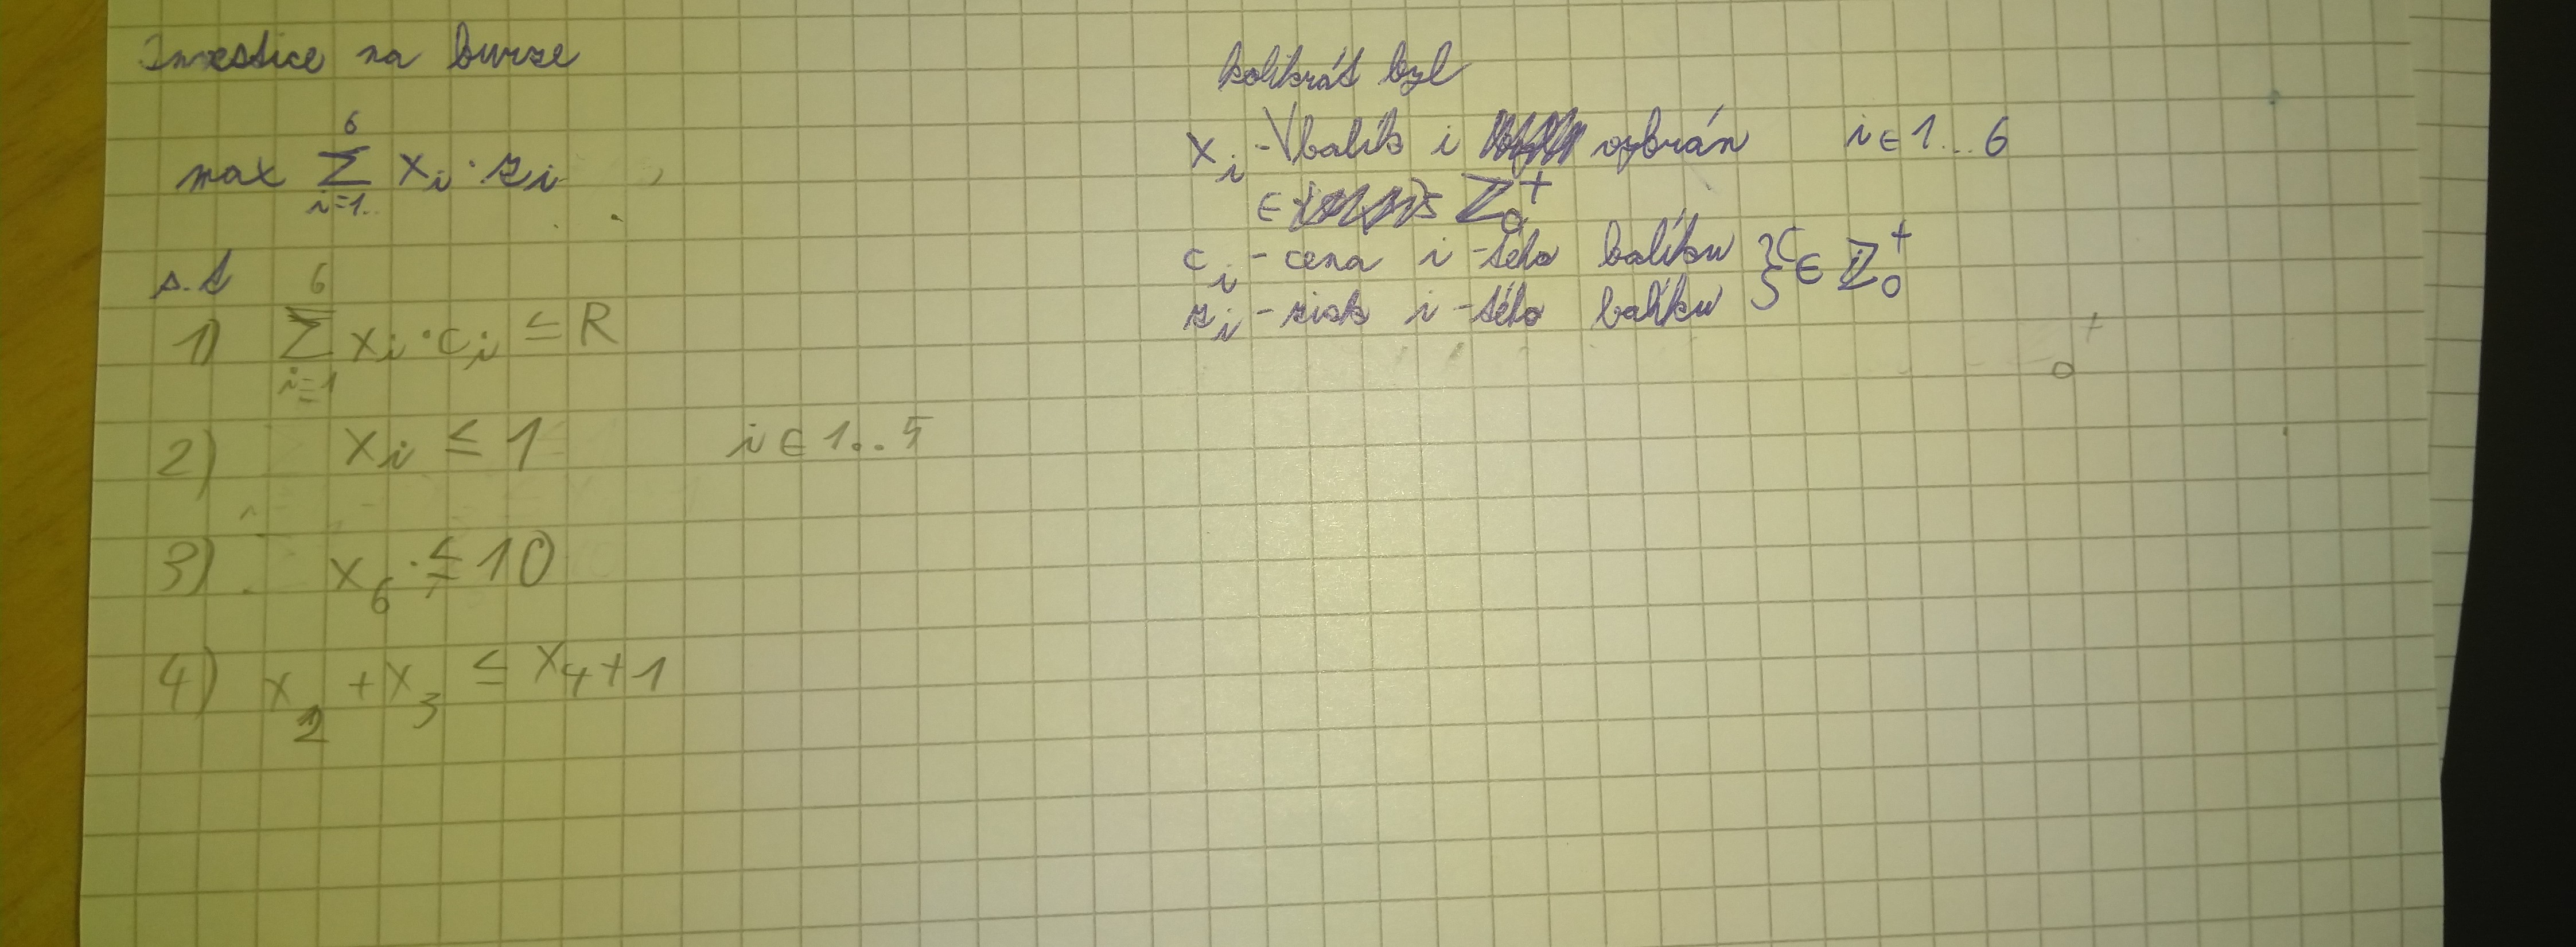 Investice na burze
max 6 ∑ i=1 xi · zi
s.t
1) 6 ∑ i=1 xi · ci ≤ R
2) xi ≤ 1 i ∈ 1..5
3) x6 ≤ 10
4) x2 + x3 ≤ x4 + 1
kolikrát byl
xi - balík i vybrán i ∈ 1...6
∈ Z0+
ci - cena i-tého balíku } ∈ Z0+
zi - zisk i-tého balíku